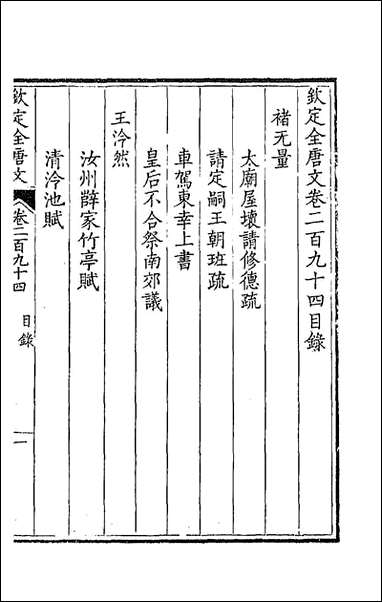 欽定全唐文卷二百九十四目錄
褚无量
太廟屋壞請修德疏
請定嗣王朝班疏
車駕東幸上書
皇后不合祭南郊議
王泠然
汝州薛家竹亭賦
清泠池賦
欽定全唐文
卷二百九十四
目錄
一